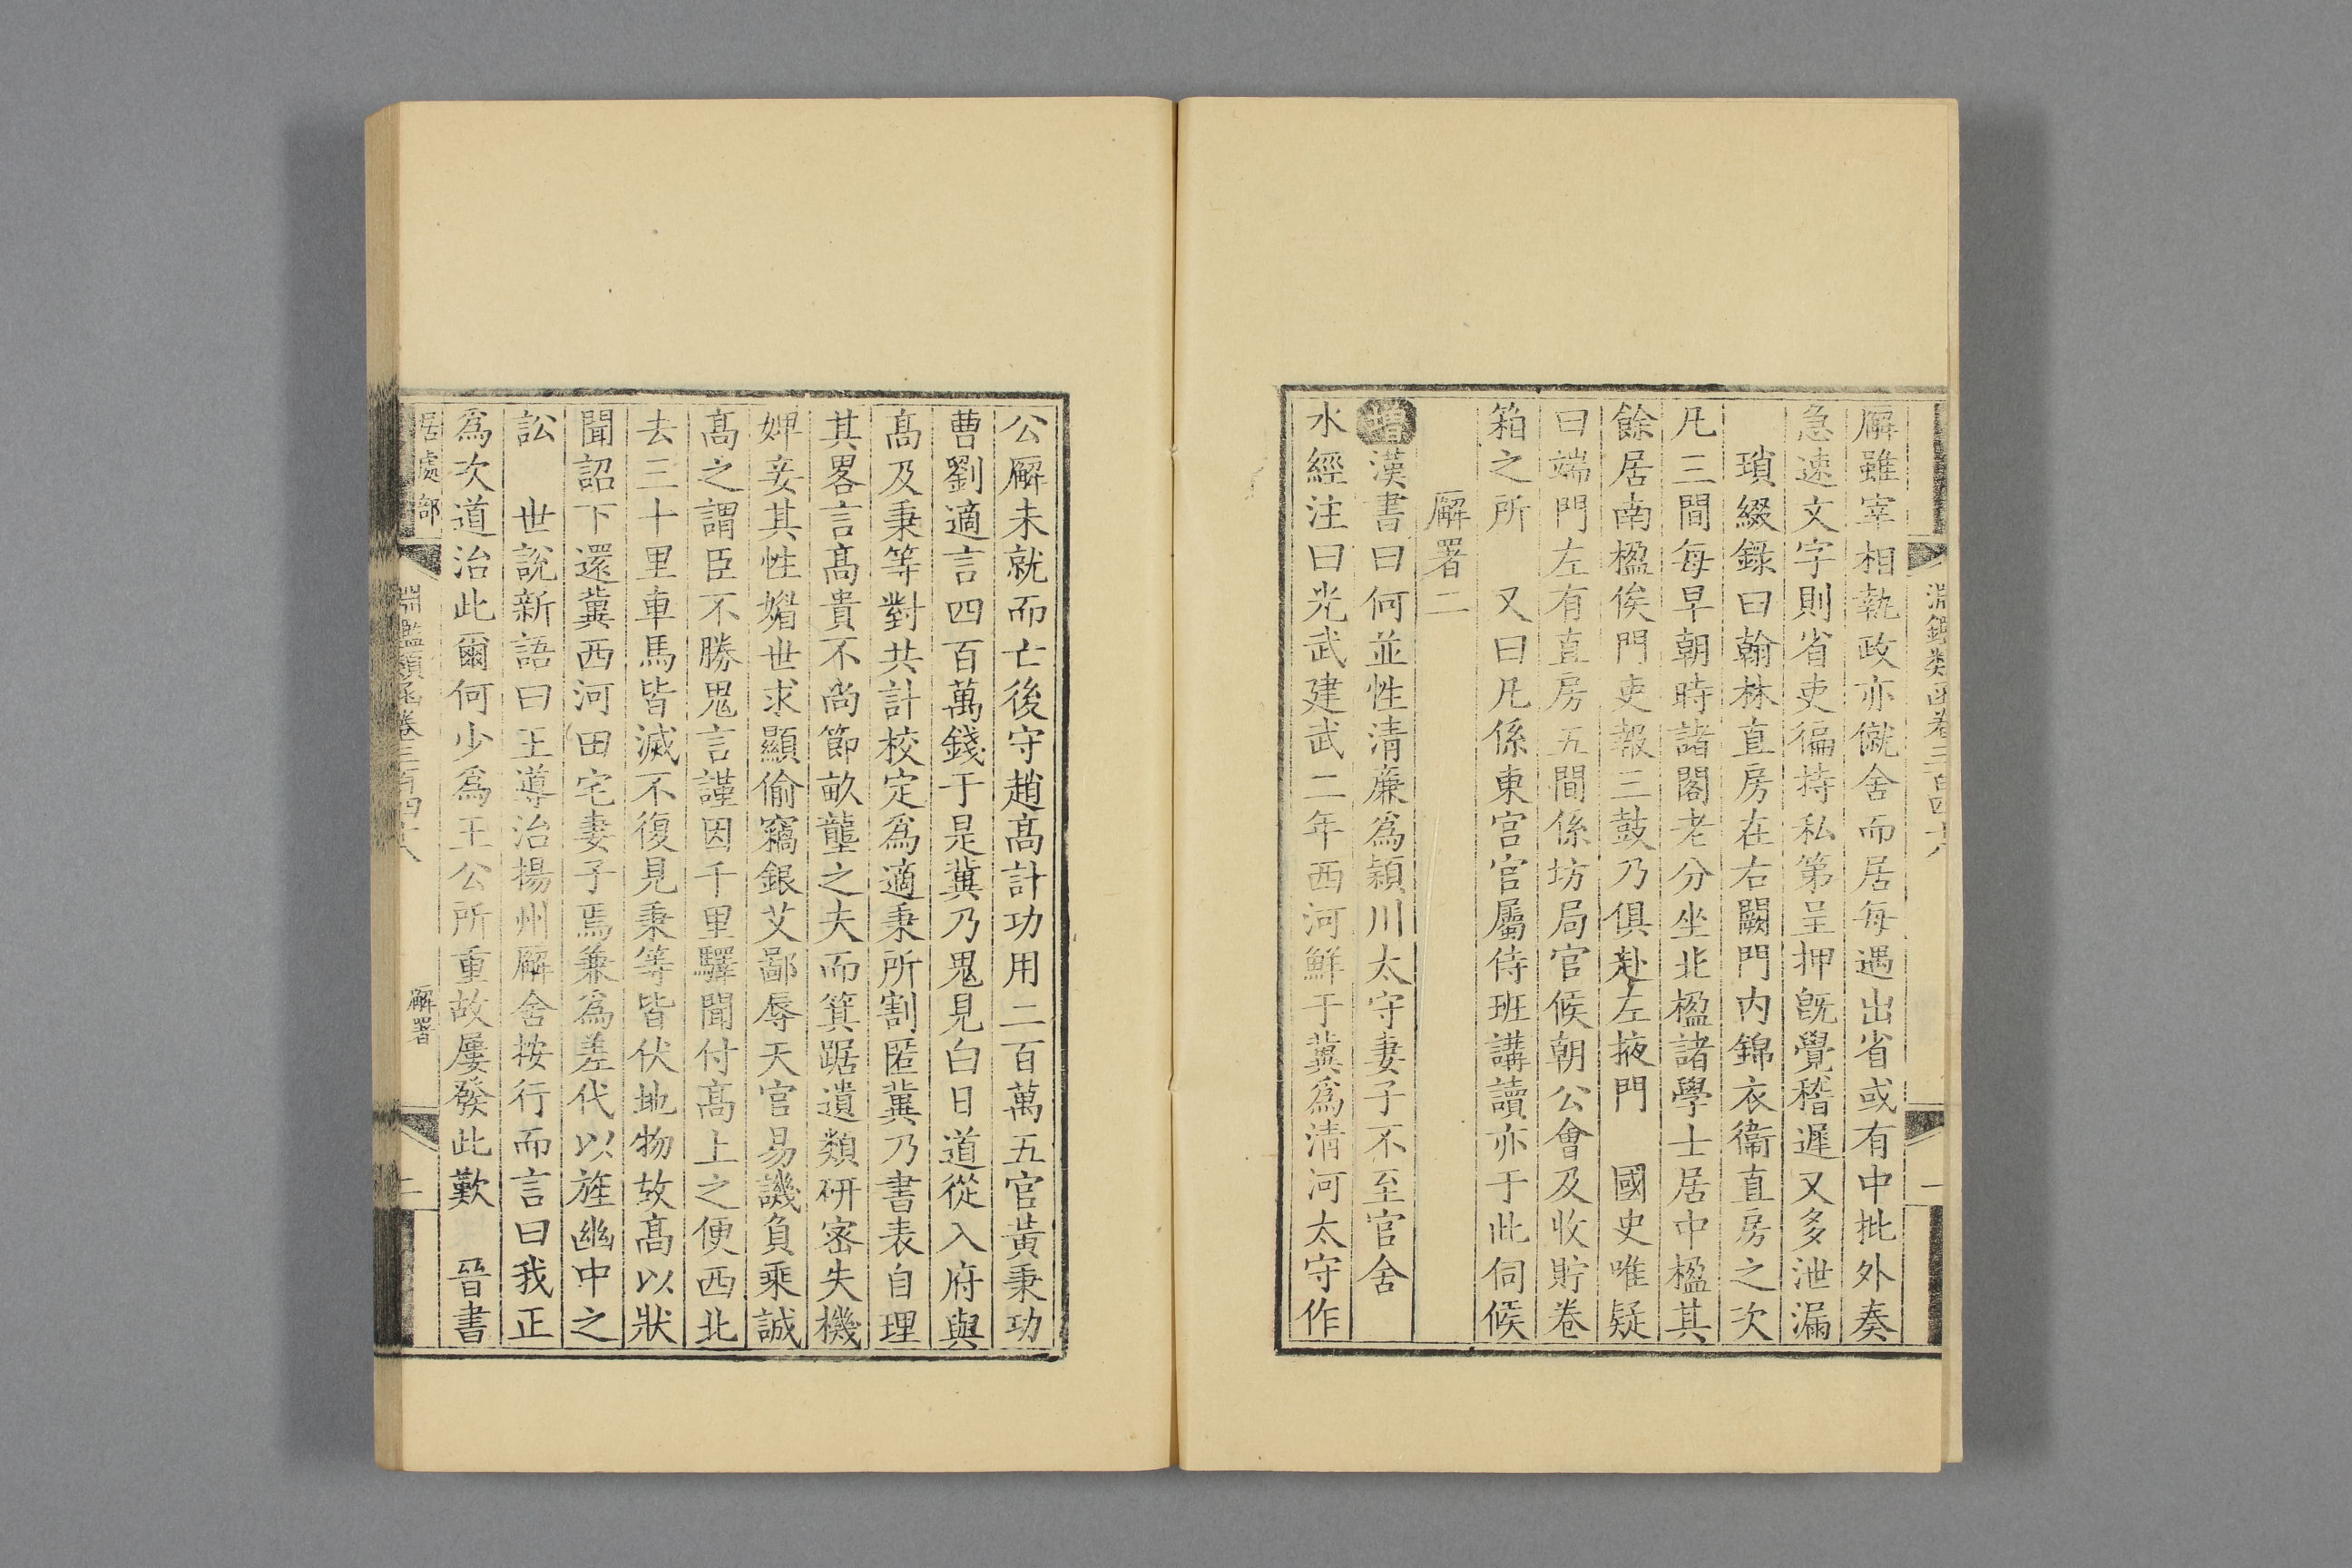 淵鑑類函卷三百四十八
一
廨雖宰相執政亦僦舍而居每遇出省或有中批外奏
急速文字則省吏徧持私第呈押旣覺稽遲又多泄漏
瑣綴録曰翰林直房在右闕門内錦衣衞直房之次
凡三間每早朝時諸閣老分坐北楹諸學士居中楹其
餘居南楹俟門吏報三鼓乃俱赴左掖門　國史唯疑
曰端門左有直房五間係坊局官候朝公會及收貯卷
箱之所　又曰凡係東宫官屬侍班講讀亦于此伺候
廨署二
增漢書曰何並性清廉爲潁川太守妻子不至官舍
水經注曰光武建武二年西河鮮于冀爲清河太守作
公廨未就而亡後守趙髙計功用二百萬五官黄秉功
曹劉適言四百萬錢于是冀乃鬼見白日道從入府與
髙及秉等對共計校定爲適秉所割匿冀乃書表自理
其畧言髙貴不尚節畝壟之夫而箕踞遺類研密失機
婢妾其性媚世求顯偷竊銀艾鄙辱天官易譏負乘誠
髙之謂臣不勝鬼言謹因千里驛聞付髙上之便西北
去三十里車馬皆滅不復見秉等皆伏地物故髙以狀
聞詔下還冀西河田宅妻子焉兼爲差代以旌幽中之
訟　世說新語曰王導治揚州廨舍按行而言曰我正
爲次道治此爾何少爲王公所重故屢發此歎　晉書
居處部
淵鑑類函卷三百四十八
廨署
二